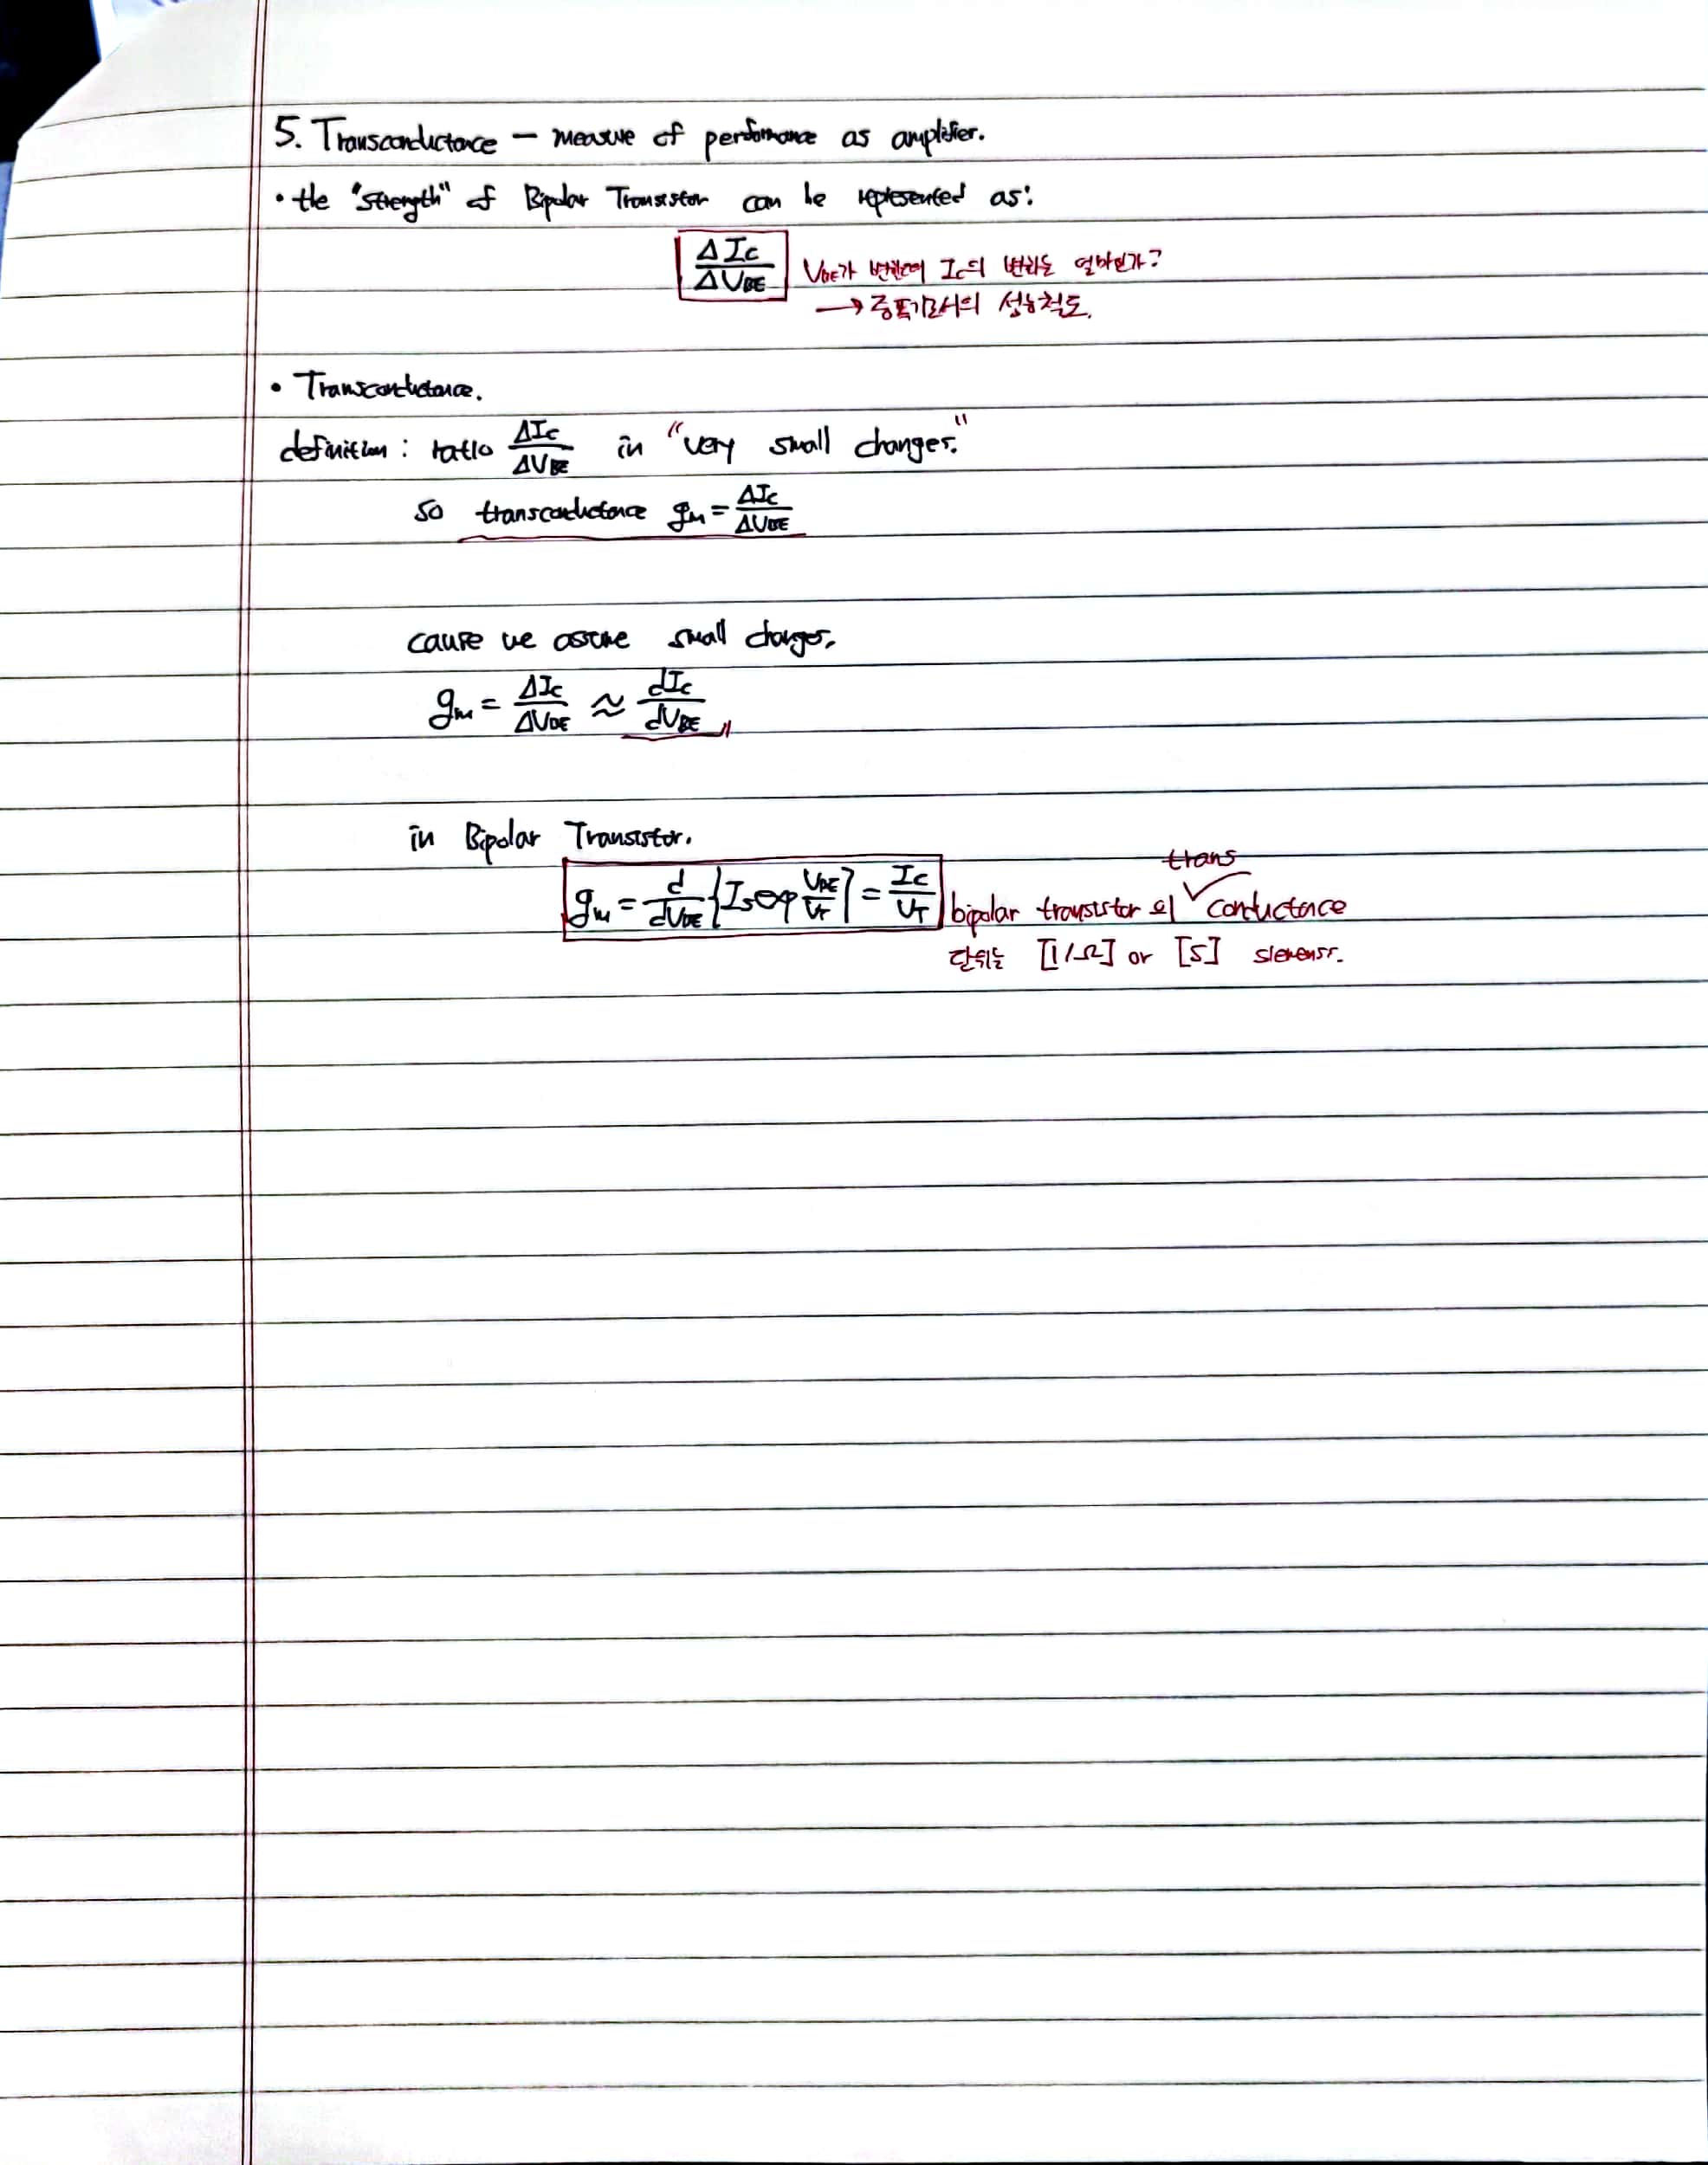 5. Transconductance – measure of performance as amplifier.
• the "strength" of Bipolar Transistor can be represented as:
ΔIc/ΔVBE VBE가 변할때 Ic의 변화는 얼마인가?
→ 증폭기로서의 성능척도.
• Transconductance.
definition : ratio ΔIc/ΔVBE in "very small changes."
so transconductance gm = ΔIc/ΔVBE
cause we assume small changes,
gm = ΔIc/ΔVBE ≈ dIc/dVBE
in Bipolar Transistor.
trans
gm = d/dVBE {Is exp VBE/VT} = Ic/VT bipolar transistor의 ✓conductance
단위는 [1/Ω] or [S] siemens.